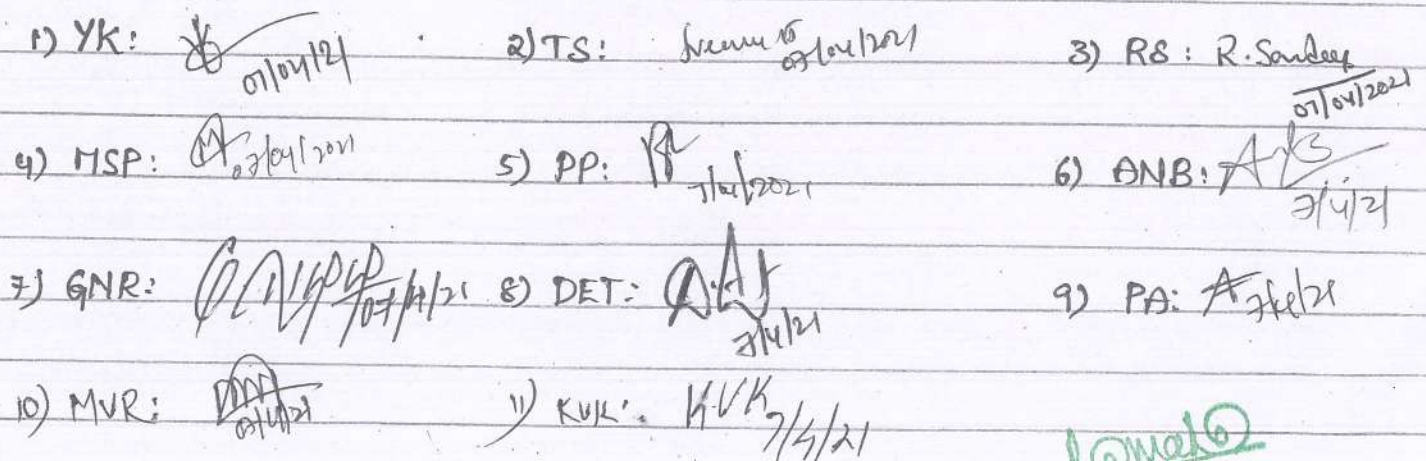 1) YK: 07/04/21 2) TS: 07/04/2021 3) RS: R. Sandeep
07/04/2021
4) MSP: 07/04/2021 5) PP: 7/04/2021 6) ANB:
7/4/21
7) GNR: 07/4/21 8) DET: 7/4/21 9) PA: 7/4/21
10) MVR: 07/4/21 11) KVK: K.V.K 7/4/21